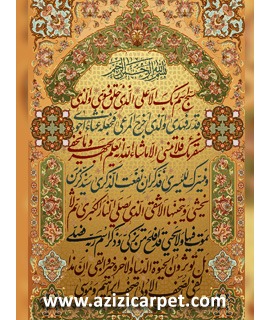 بسم الله الرحمن الرحيم
سبح اسم ربك الاعلى الذى خلق فسوى والذى
قدر فهدى والذى اخرج المرعى فجعله غثاء احوى
سنقرئك فلا تنسى الا ما شاء الله انه يعلم الجهر وما يخفى
ونيسرك لليسرى فذكر ان نفعت الذكرى سيذكر من
يخشى ويتجنبها الاشقى الذى يصلى النار الكبرى ثم لا
يموت فيها ولا يحيى قد افلح من تزكى وذكر اسم ربه فصلى
بل تؤثرون الحيوة الدنيا والاخرة خير وابقى ان هذا
لفى الصحف الاولى صحف ابراهيم وموسى
www.azizicarpet.com